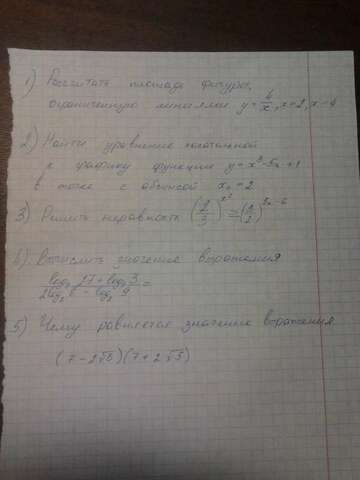 1) Рассчитать площадь фигуры,
ограниченную линиями y=6/x, x=2, x=4
2) Найти уравнение касательной
к графику функции y=x³-5x+1
в точке с абсцисой x₀=2
3) Решить неравность (2/3)^x² = (2/2)^5x-6
4) Вычислить значение выражения
log₃ 27 + log₃ 3 / 2log₂ 6 - log₂ 9 =
5) Чему равняется значение выражения
(7-2√5)(7+2√5)